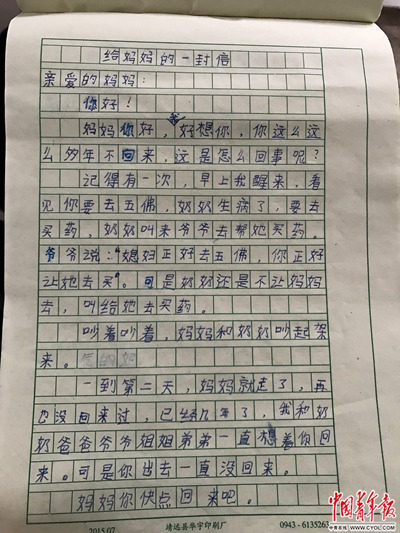 给妈妈的一封信
亲爱的妈妈：
你好！
妈妈你好，我好想你，你这么这
么多年不回来，这是怎么回事呢？
记得有一次，早上我醒来，看
见你要去五佛，奶奶生病了，要去
买药，奶奶叫来爷爷去帮她买药。
爷爷说："媳妇正好去五佛，你正好
让她去买"。可是奶奶还是不让妈妈
去，叫给她去买药。
吵着吵着，妈妈和奶奶吵起架
来。
一到第二天，妈妈就走了，再
也没回来过，已经几年了，我和奶
奶爸爸爷爷姐姐弟弟一直想着你回
来。可是你出去一直没回来。
妈妈你快点回来吧。
2015.07
靖远县华宇印刷厂
0943-6135263
中国青年报